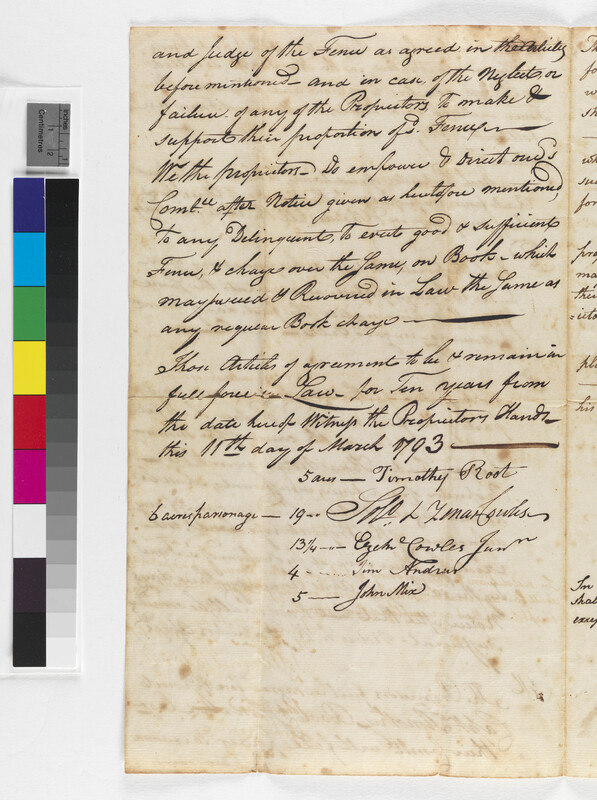 and Judge of the Fence as agreed in the Articles
before mintioned – and in case of the Neglect or
failure of any of the Proprietors To make &
support their proportion of sd. Fence –
We the proprietors – Do empower & Direct our sd
Comtee after Notice given as heretofore mentioned
To any Delinquent, to erecte good & sufficient
Fence, & charge over the Same, on Book – which
may be sued & Recovered in Law the Same as
any regular Book charge
Those Articles of agreement to be & remain in
full force in Law – for Ten years from
the date hereof Witness the Proprietors Hands –
this 11th day of March 1793
5 acres — Timothy Root
6 acres parsonage — 19 – Solo & Zenas Cowles
13 1/4 – Ezekl Cowles Junr
4 Tim Andrus
5 — John Mix
In
shall
except
Inches
Centimetres